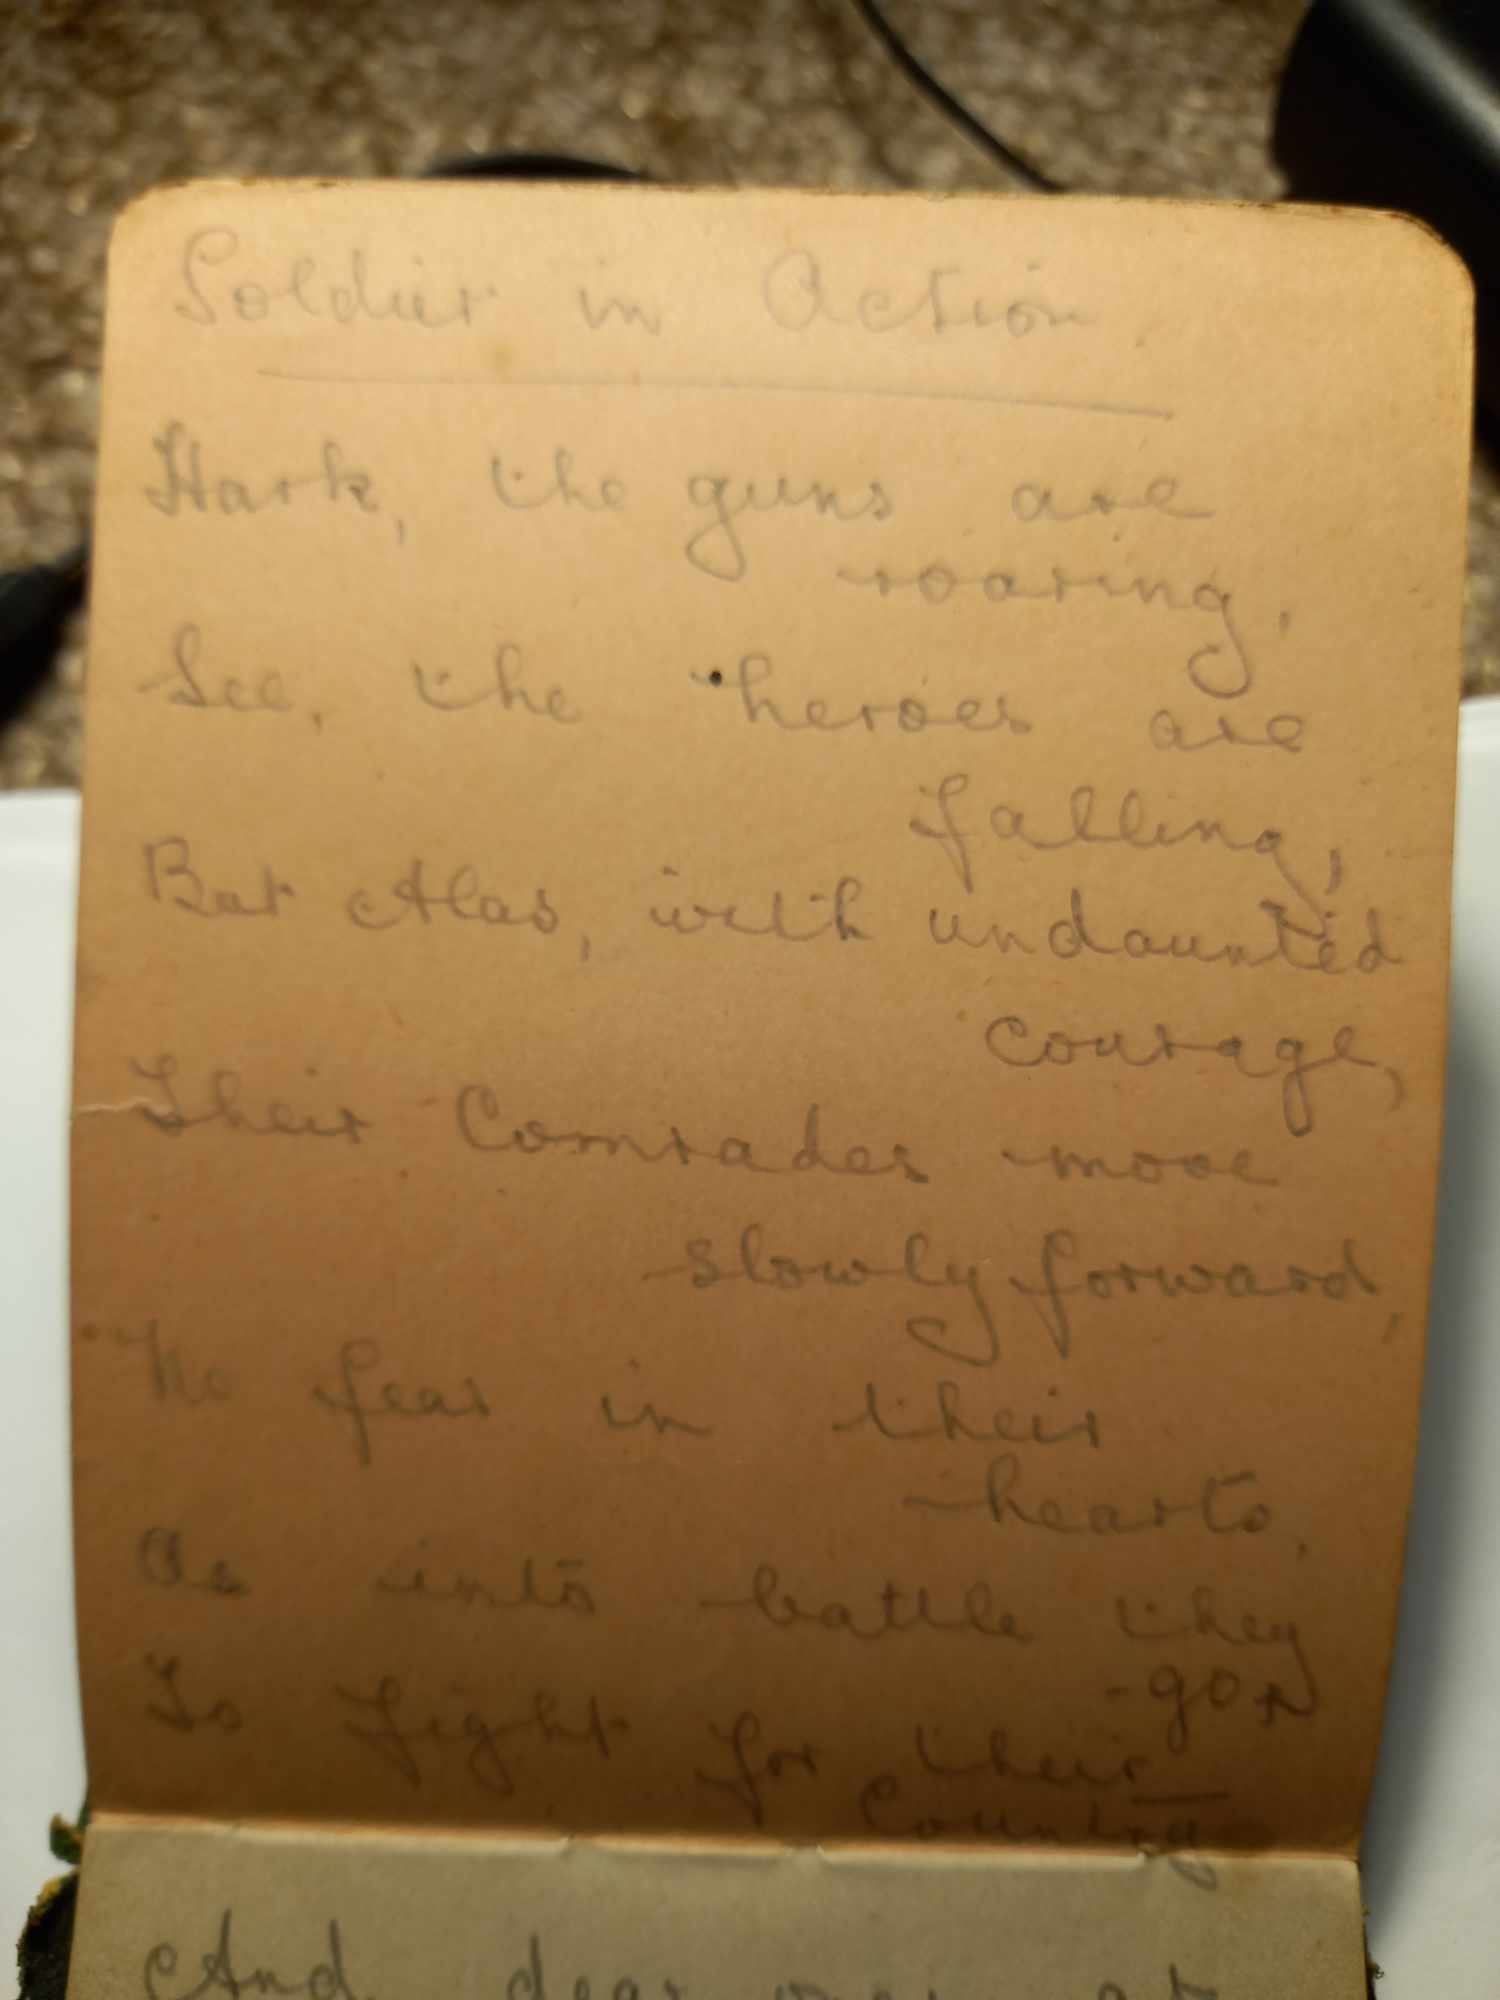 Soldier in Action.
Hark, the guns are
roaring,
See, the heroes are
falling,
But Alas, with undaunted
courage,
Their Comrades move
slowly forward,
No fear in their
hearts,
As into battle they
go,
To fight for their
Country
And dear ones at